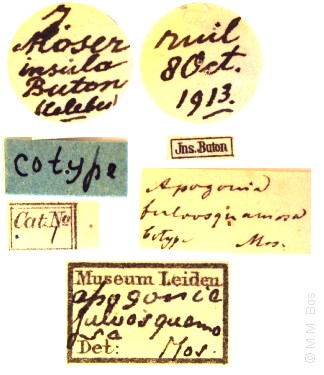 7
Moser
insula
Buton
(Celebes)
ruil
8 Oct.
1913.
cotype
Jns. Buton
Cat. No
Apogonia
fulvosquamosa
Cotype Mos.
Museum Leiden
apogonia
fulvosquamo
sa
Det: Mos.
© M.M. Bos